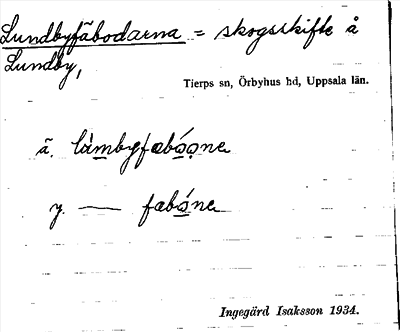 Lundbyfäbodarna = skogsskifte å
Lundby,
Tierps sn, Örbyhus hd, Uppsala län.
ä. làmbyfæbóone
y. — fæbóne
Ingegärd Isaksson 1934.